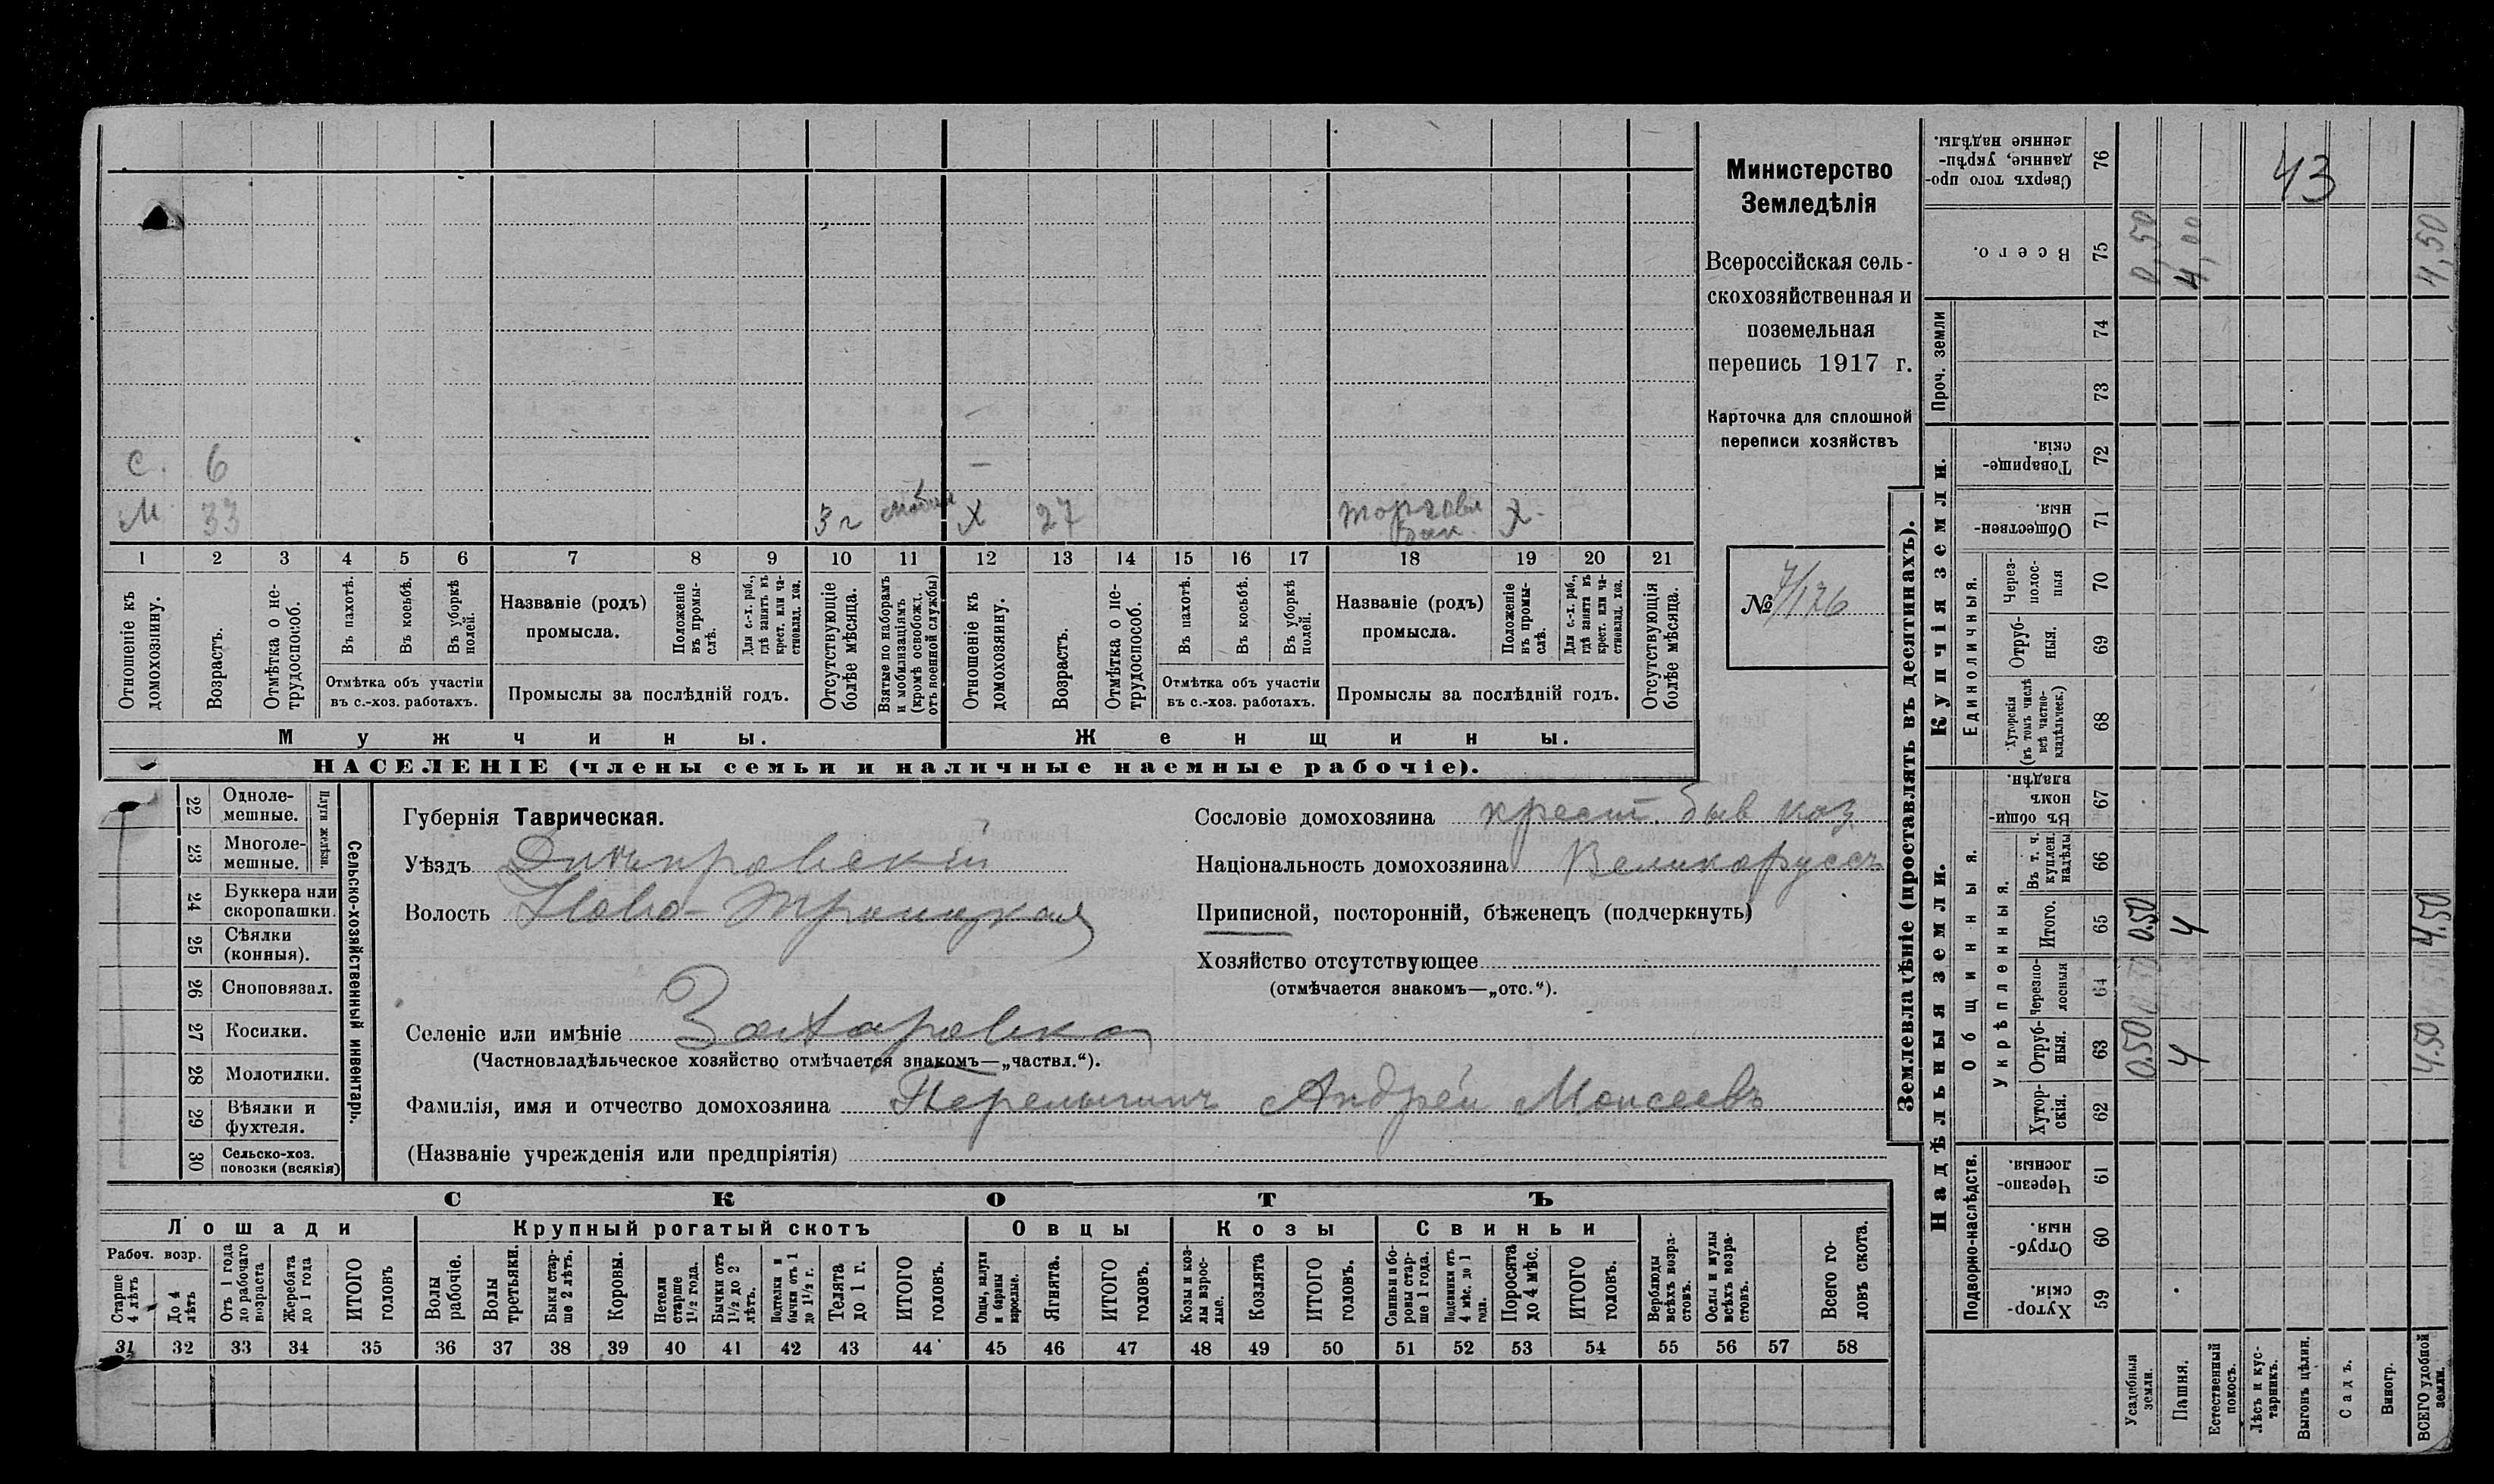 Министерство
Земледѣлія
Всероссійская сель-
скохозяйственная и
поземельная
перепись 1917 г.
Карточка для сплошной
переписи хозяйствъ
№ 7/126
С. 6 —
М 33 3 г X 27 торговл X.
1 2 3 4 5 6 7 8 9 10 11 12 13 14 15 16 17 18 19 20 21
Отношеніе къ домохозяину.
Возрастъ.
Отмѣтка о не-трудоспособ.
Въ пахотѣ.
Въ косьбѣ.
Въ уборкѣ полей.
Отмѣтка объ участіи
въ с.-хоз. работахъ.
Названіе (родъ)
промысла.
Положеніе въ промы-слѣ.
Для с.-х. раб., гдѣ занятъ въ крест. или ча-стновлад. хоз.
Промыслы за послѣдній годъ.
Отсутствующіе болѣе мѣсяца.
Взятые по наборамъ и мобилизаціямъ (кромѣ освобожд. отъ военной службы)
Отношеніе къ домохозяину.
Возрастъ.
Отмѣтка о не-трудоспособ.
Въ пахотѣ.
Въ косьбѣ.
Въ уборкѣ полей.
Отмѣтка объ участіи
въ с.-хоз. работахъ.
Названіе (родъ)
промысла.
Положеніе въ промы-слѣ.
Для с.-х. раб., гдѣ занята въ крест. или ча-стновлад. хоз.
Промыслы за послѣдній годъ.
Отсутствующія болѣе мѣсяца.
Мужчины. Женщины.
НАСЕЛЕНІЕ (члены семьи и наличные наемные рабочіе).
Сельско-хозяйственный инвентарь.
Плуги желѣзн.
22 Одноле-мешные.
23 Многоле-мешные.
24 Буккера или скоропашки.
25 Сѣялки (конныя).
26 Сноповязал.
27 Косилки.
28 Молотилки.
29 Вѣялки и фухтеля.
30 Сельско-хоз. повозки (всякія)
Губернія Таврическая.
Уѣздъ Днѣпровскій
Волость Ново-Троицкая
Селеніе или имѣніе Захаровка
(Частновладѣльческое хозяйство отмѣчается знакомъ—„частвл.“).
Фамилія, имя и отчество домохозяина Андрей Моисеевъ
(Названіе учрежденія или предпріятія)
Сословіе домохозяина крест. быв каз
Національность домохозяина Великоруссъ
Приписной, посторонній, бѣженецъ (подчеркнуть)
Хозяйство отсутствующее
(отмѣчается знакомъ—„отс.“).
СКОТЪ
Лошади Крупный рогатый скотъ Овцы Козы Свиньи
Рабоч. возр.
Старше 4 лѣтъ
До 4 лѣтъ
Отъ 1 года до рабочаго возраста
Жеребята до 1 года
ИТОГО головъ
Волы рабочіе.
Волы третьяки.
Быки стар-ше 2 лѣтъ.
Коровы.
Нетели старше 1½ года.
Бычки отъ 1½ до 2 лѣтъ.
Подтелки и бычки отъ 1 до 1½ г.
Телята до 1 г.
ИТОГО головъ.
Овцы, валухи и бараны взрослые.
Ягнята.
ИТОГО головъ.
Козы и коз-лы взрос-лые.
Козлята
ИТОГО головъ.
Свиньи и бо-ровы стар-ше 1 года.
Подсвинки отъ 4 мѣс. до 1 года.
Поросята до 4 мѣс.
ИТОГО головъ.
Верблюды всѣхъ возра-стовъ.
Ослы и мулы всѣхъ возра-стовъ.
Всего го-ловъ скота.
31 32 33 34 35 36 37 38 39 40 41 42 43 44 45 46 47 48 49 50 51 52 53 54 55 56 57 58
Землевладѣніе (проставлять въ десятинахъ).
Надѣльныя земли.
Подворно-наслѣдств.
Хутор-скія. 59
Отруб-ныя. 60
Черезпо-лосныя. 61
Общинныя.
Укрѣпленныя.
Хутор-скія. 62
Отруб-ныя. 63 0.50 4 4.50
Черезпо-лосныя 64
Итого. 65 0.50 4 4.50
Въ т. ч. куплен. надѣлы 66
Въ общи-номъ владѣн. 67
Купчія земли.
Единоличныя.
Хуторскія (въ томъ числѣ всѣ частно-владѣльческ.) 68
Отруб-ныя. 69
Через-полос-ныя 70
Обществен-ныя. 71
Товарище-скія. 72
Проч. земли
73
74
Всего. 75 0,50 4,00 4,50
Сверхъ того про-данные, укрѣп-ленные надѣлы. 76
43
Усадебныя земли.
Пашня.
Естественный покосъ.
Лѣсъ и кус-тарникъ.
Выгонъ цѣлин.
Садъ.
Виногр.
ВСЕГО удобной земли.